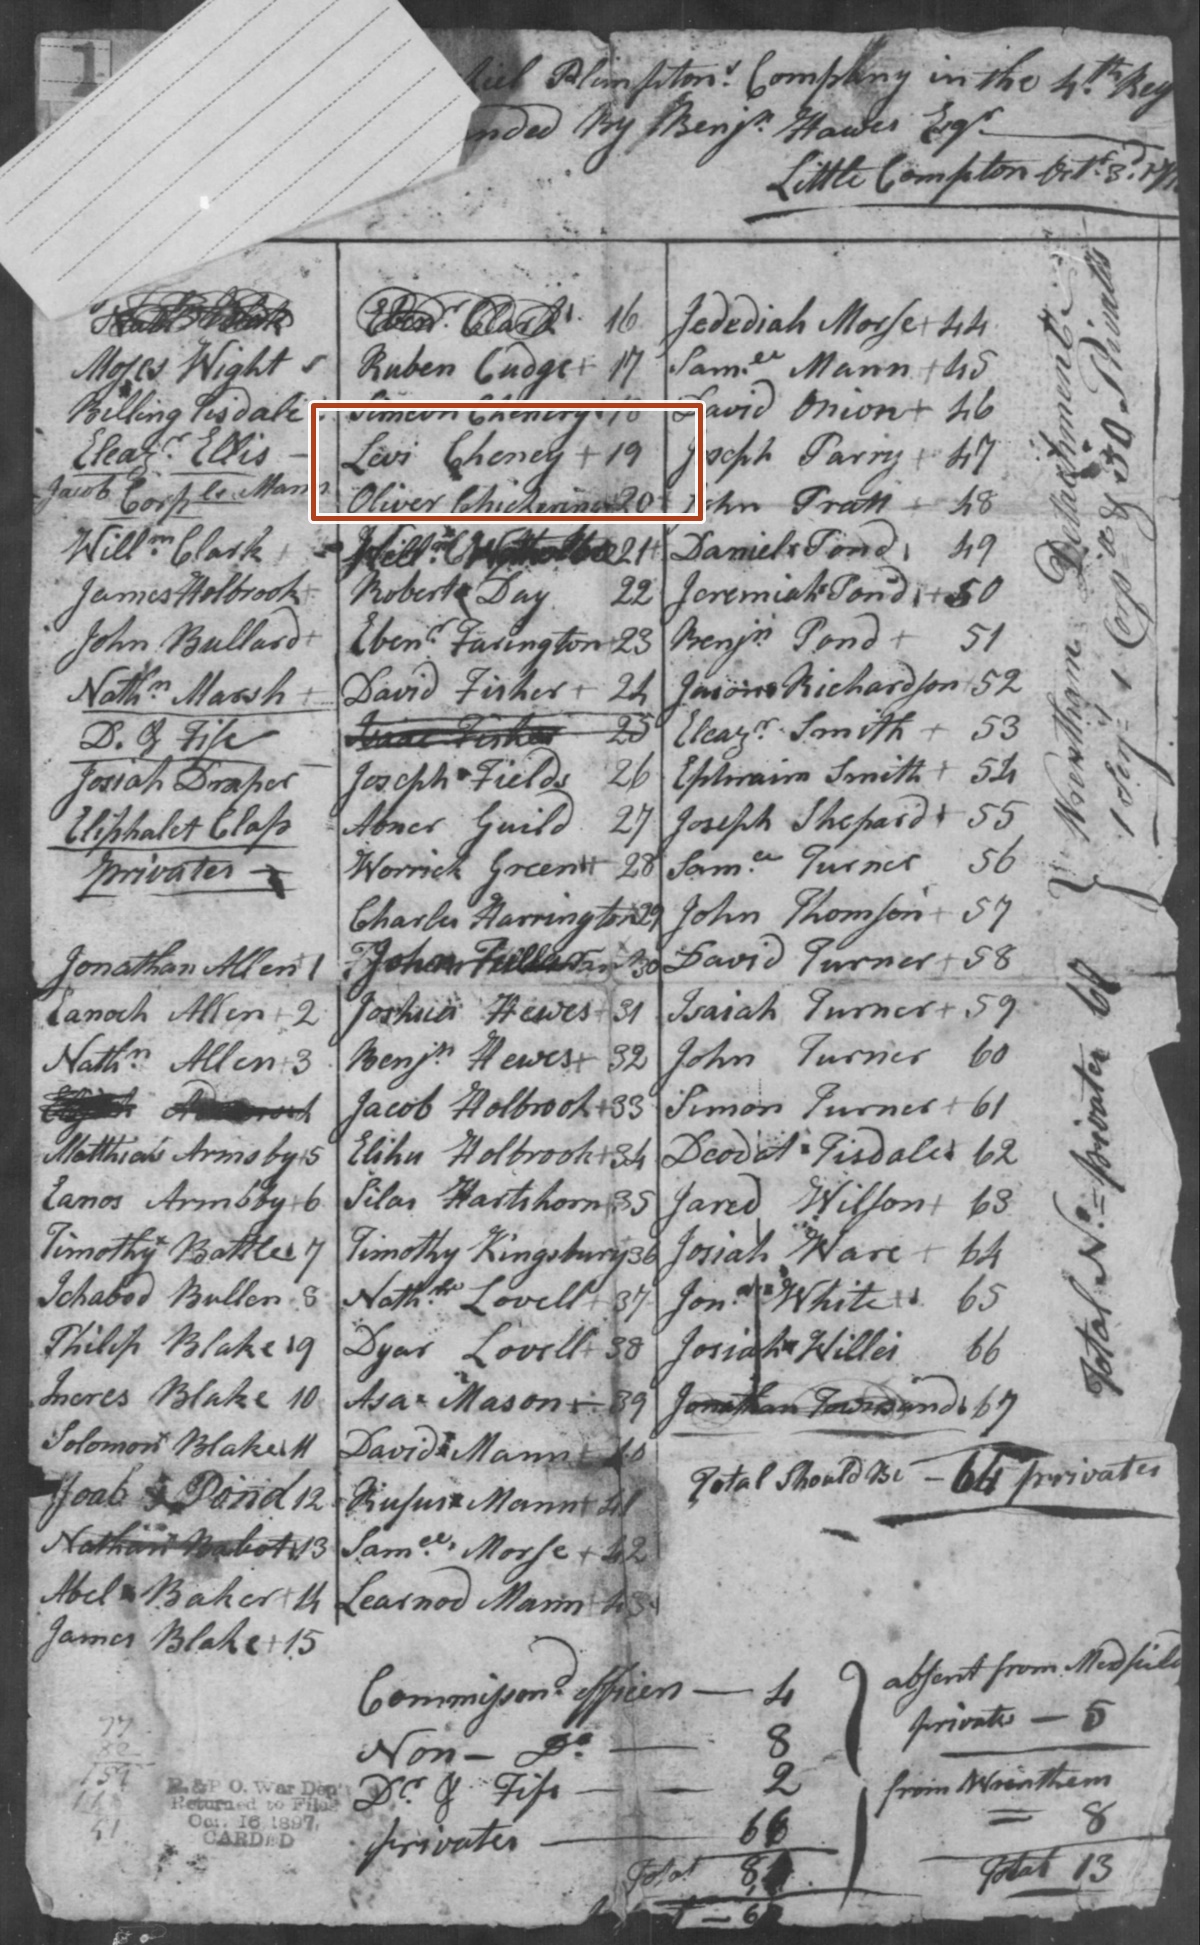 1
Plimpton's Company in the 4th Reg
By Benjn Hawes Esqr
Little Compton Octr 3d
Moses Wight
Billing Tisdale
Eleazr Ellis
Jacob Mann
Corpls
Willm Clark +
James Holbrook +
John Bullard +
Nathn Marsh +
D. & Fife
Josiah Draper
Eliphalet Clap
privates
Jonathan Allen 1
Eanoch Allen + 2
Nathn Allen + 3
Matthias Armsby + 5
Eanos Armsby + 6
Timothy Battle 7
Ichabod Bullen 8
Philip Blake 9
Incres Blake 10
Solomon Blake 11
Joab Pond 12
Nathan Babot 13
Abel Baker + 14
James Blake + 15
Ebenr Clark 16
Ruben Cudge + 17
Simeon Chenery + 18
Levi Cheney + 19
Oliver Chickering 20
Willm 21
Robert Day 22
Ebenr Farington 23
David Fisher + 24
Isaac Fisher 25
Joseph Fields 26
Abner Guild 27
Worrick Green 28
Charles Harrington 29
John Fuller 30
Joshua Hewes + 31
Benjn Hewes + 32
Jacob Holbrook + 33
Elihu Holbrook + 34
Silas Hartshorn 35
Timothy Kingsbury 36
Nathll Lovell + 37
Dyar Lovell + 38
Asa Mason + 39
David Mann + 40
Rufus Mann + 41
Samll Morse + 42
Learnod Mann + 43
Jedediah Morse + 44
Samll Mann + 45
David Onion + 46
Joseph Parry + 47
John Pratt + 48
Daniel Pond 49
Jeremiah Pond + 50
Benjn Pond + 51
Jason Richardson + 52
Eleazr Smith + 53
Ephraim Smith + 54
Joseph Shepard 55
Samll Turner 56
John Thomson + 57
David Turner + 58
Isaiah Turner + 59
John Turner 60
Simon Turner + 61
Deodat Tisdale 62
Jared Wilson + 63
Josiah Ware + 64
Jonan White 65
Josiah Willis 66
Jonathan Townsend 67
Total Should Be - 64 privates
Wrentham Detachment
1 Serjt 1 Corpl & 30 Privates
Total No = privates
Commissond officers — 4
Non - Do — 8
Dr & Fife — 2
privates — 66
Total
absent from Medfield
private — 5
from Wrentham
= 8
Total 13
R. & P. O. War Dep't
Returned to Files
Oct. 16 1897.
CARDED